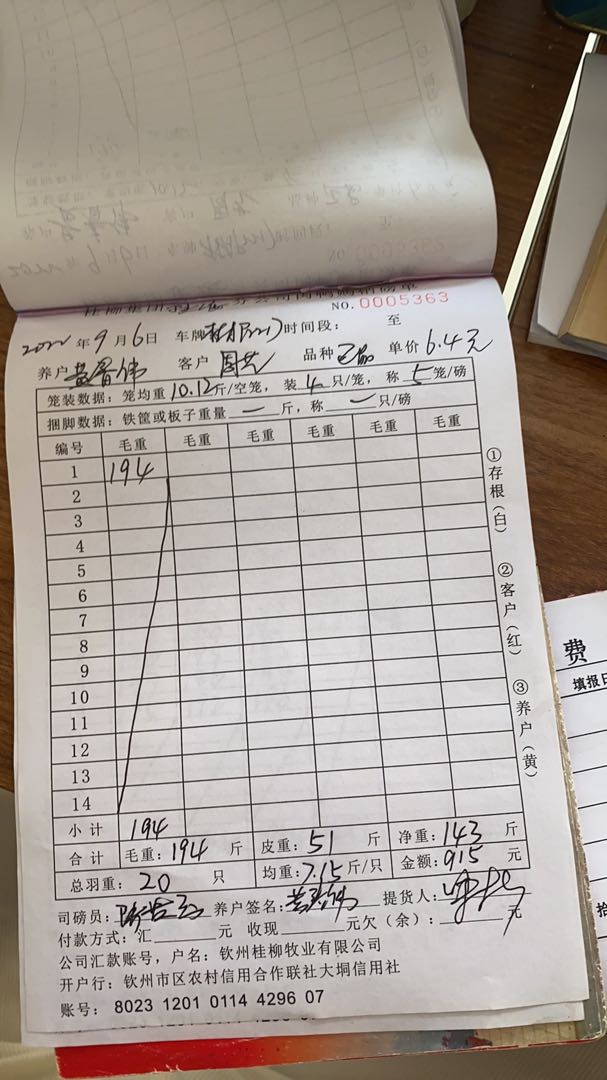 NO.0005363
2022年9月6日 车牌 时间段： 至
养户 客户 品种 正品 单价 6.4元
笼装数据：笼均重10.12斤/空笼，装4只/笼，称5笼/磅
捆脚数据：铁筐或板子重量一斤，称一只/磅
编号 毛重 毛重 毛重 毛重 毛重 毛重
1 194
2
3
4
5
6
7
8
9
10
11
12
13
14
小计 194
合计 毛重：194 斤 皮重：51 斤 净重：143 斤
总羽重：20 只 均重：7.15斤/只 金额：915 元
司磅员： 养户签名： 提货人：
付款方式：汇______元 收现______元欠（余）：______元
公司汇款账号，户名：钦州桂柳牧业有限公司
开户行：钦州市区农村信用合作联社大垌信用社
账号：8023 1201 0114 4296 07
①存根（白）
②客户（红）
③养户（黄）
费
填报日